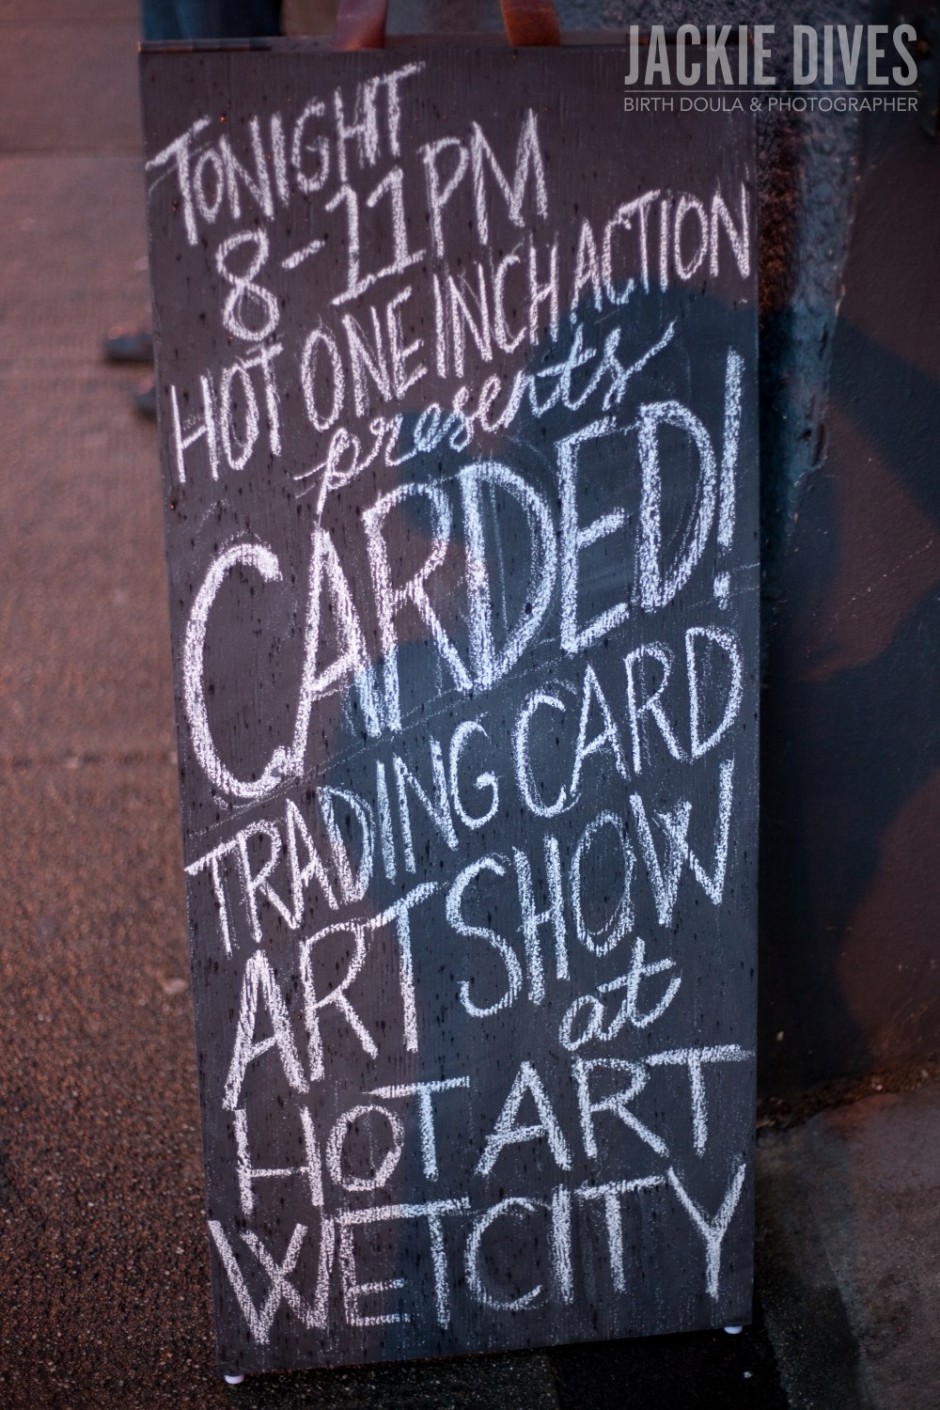 JACKIE DIVES
BIRTH DOULA & PHOTOGRAPHER
TONIGHT
8-11PM
HOT ONE INCH ACTION
presents
CARDED!
TRADING CARD
ART SHOW
at
HOT ART
WET CITY